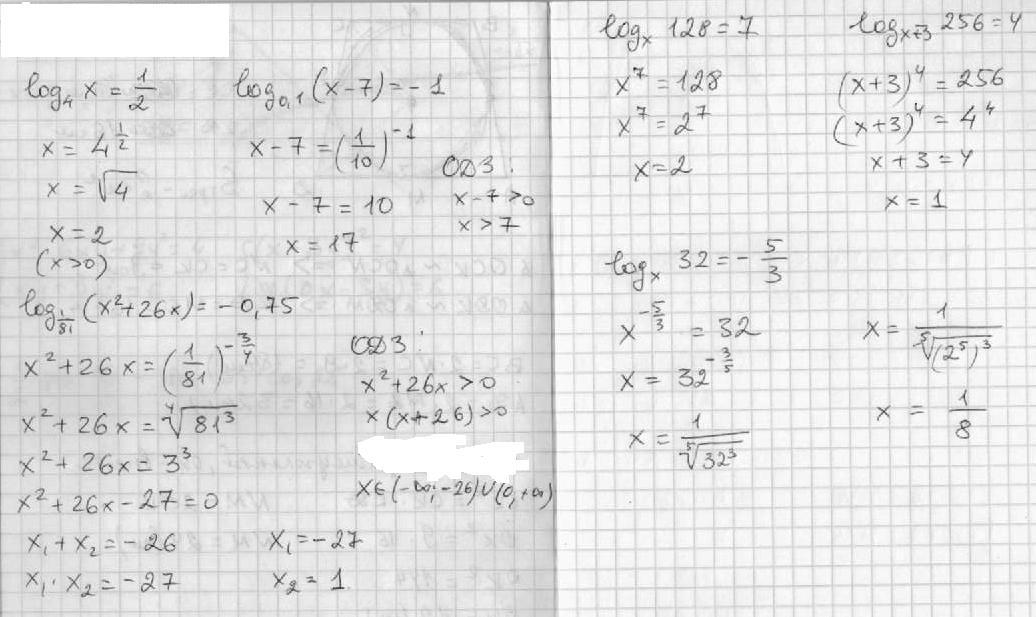 log₄ x = 1/2
x = 4^(1/2)
x = √4
x = 2
(x>0)
log₀,₁ (x-7) = -1
x - 7 = (1/10)^(-1)
x - 7 = 10
x = 17
ОДЗ:
x-7>0
x>7
log_(1/81) (x²+26x) = -0,75
x²+26x = (1/81)^(-3/4)
x²+26x = ⁴√(81³)
x²+26x = 3³
x²+26x-27=0
x₁+x₂=-26
x₁·x₂=-27
x₁=-27
x₂=1
ОДЗ:
x²+26x>0
x(x+26)>0
x∈(-∞;-26)∪(0,+∞)
logₓ 128 = 7
x⁷ = 128
x⁷ = 2⁷
x=2
log_(x+3) 256 = 4
(x+3)⁴ = 256
(x+3)⁴ = 4⁴
x+3=4
x=1
logₓ 32 = -5/3
x^(-5/3) = 32
x = 32^(-3/5)
x = 1/⁵√(32³)
x = 1/⁵√((2⁵)³)
x = 1/8